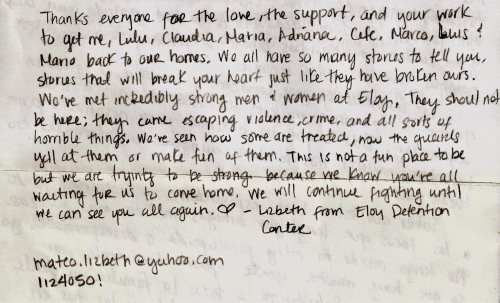 Thanks everyone for the love, the support, and your work
to get me, Lulu, Claudia, Maria, Adriana, Cefe, Marco, Luis &
Mario back to our homes. We all have so many stories to tell you,
stories that will break your heart just like they have broken ours.
We've met incredibly strong men & women at Eloy, They should not
be here; they came escaping violence, crime, and all sorts of
horrible things. We've seen how some are treated, how the guards
yell at them or make fun of them. This is not a fun place to be
but we are trying to be strong because we know you're all
waiting for us to come home. We will continue fighting until
we can see you all again. ♡ - Lizbeth from Eloy Detention
Center
mateo.lizbeth@yahoo.com
1124050!